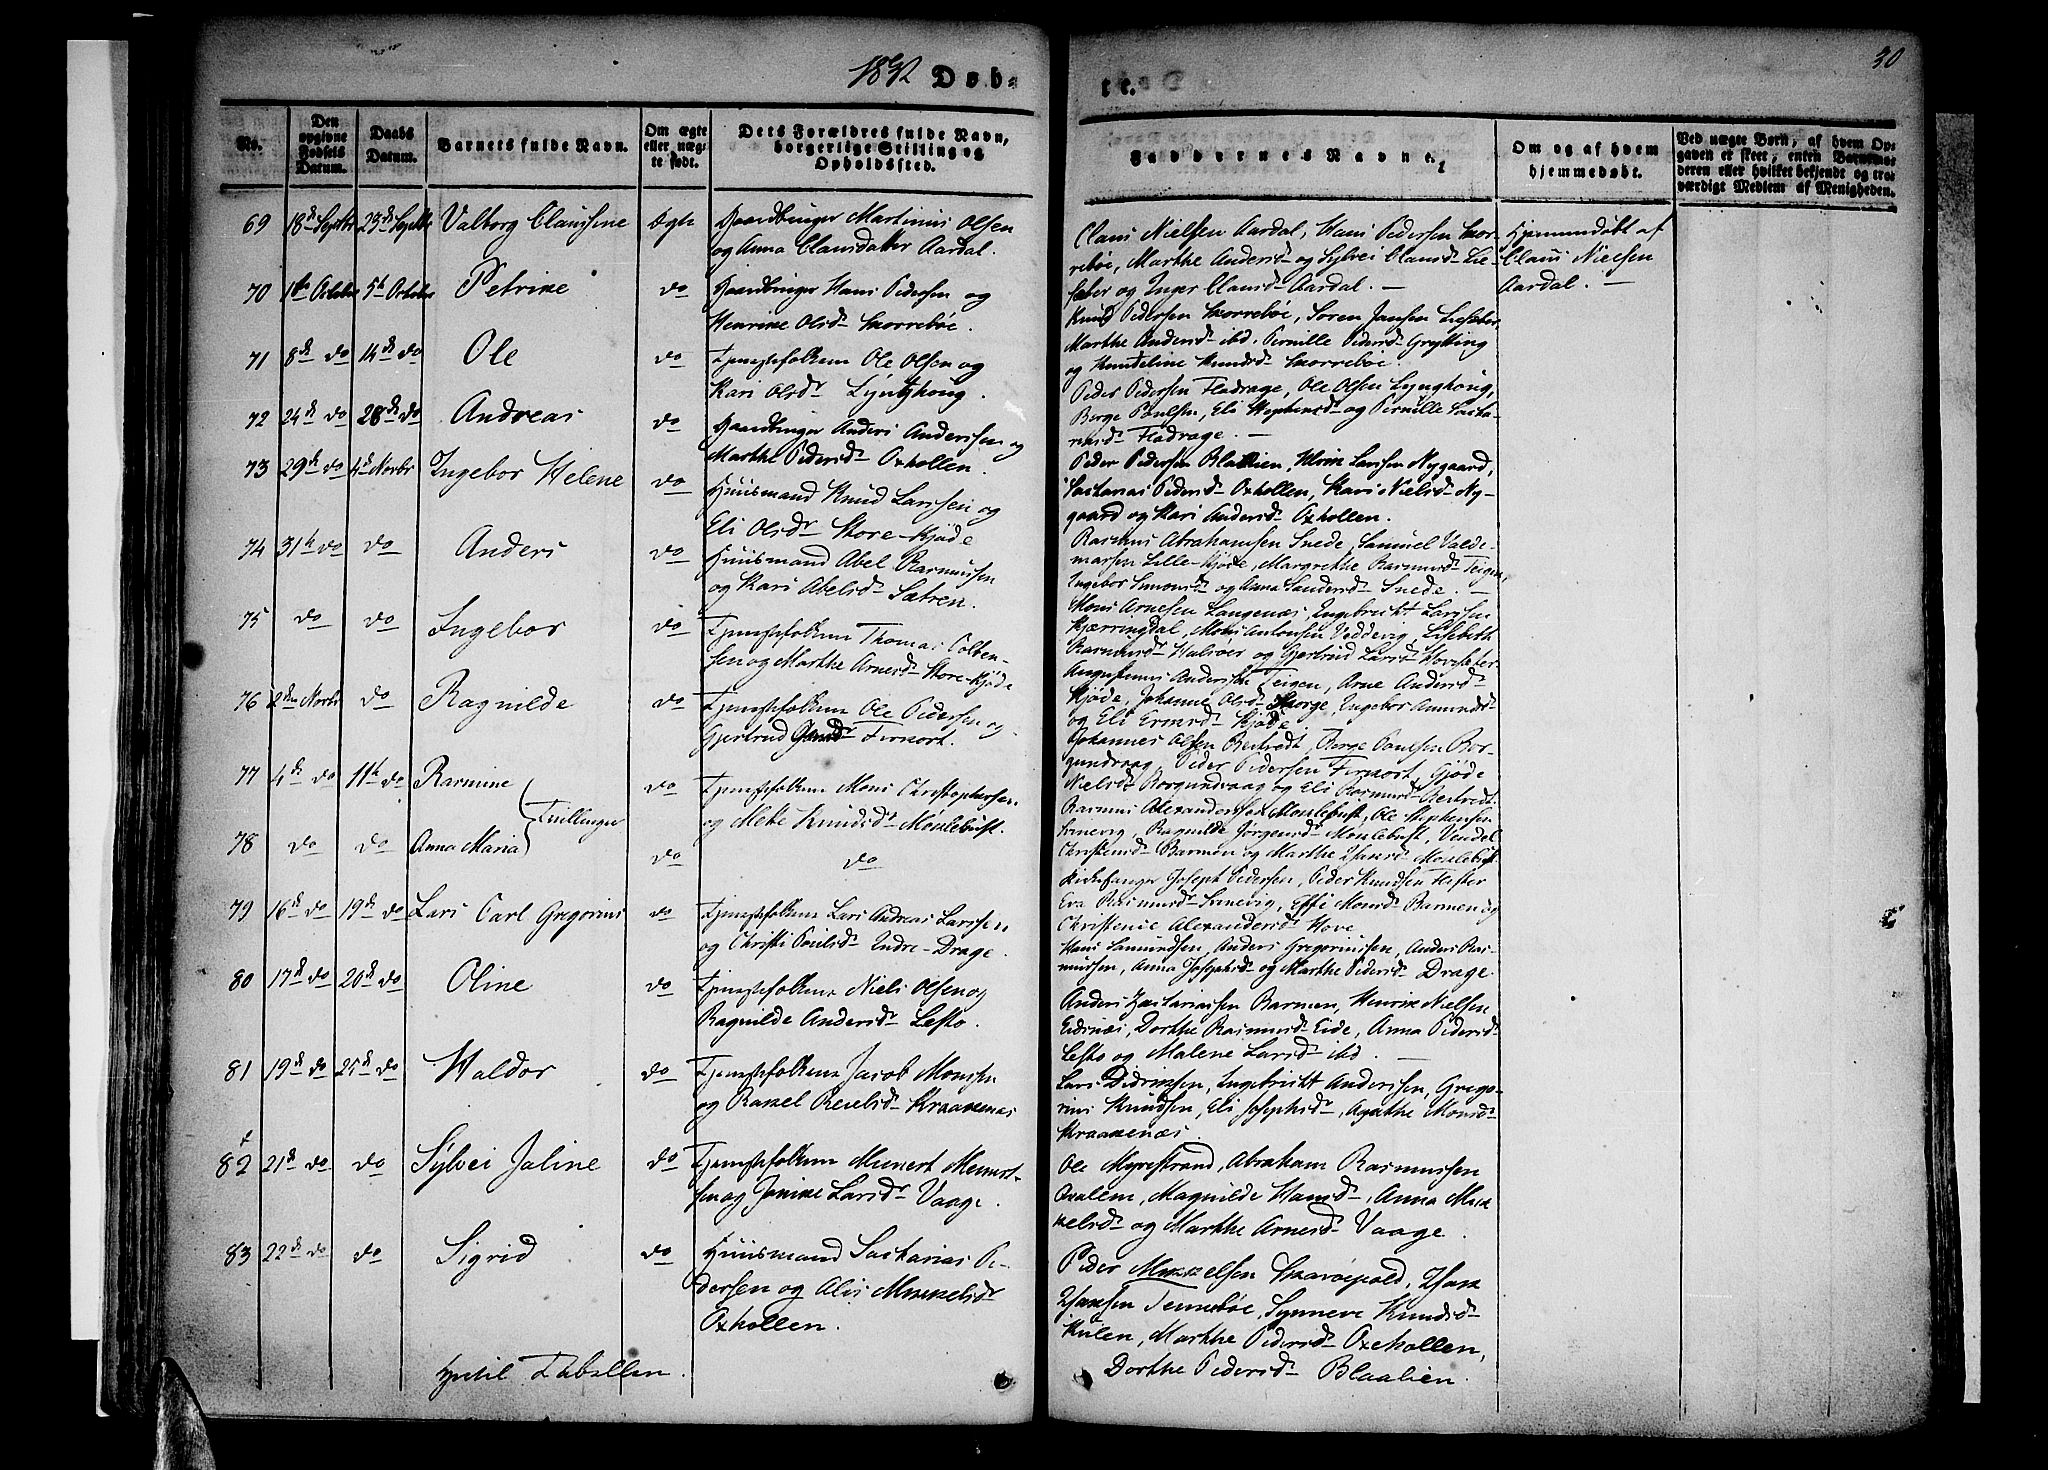 1832 Døb-
te.
30
No.
Den opgivne Fødsels Datum.
Daabs Datum.
Barnets fulde Navn.
Om ægte eller uægte født.
Dets Forældres fulde Navn, borgerlige Stilling og Opholdssted.
Faddernes Navne.
Om og af hvem hjemmedøbt.
Ved uægte Børn, af hvem Opgaven er skeet, enten Barnemoderen eller hvilket bekjendt og troværdigt Medlem af Menigheden.
69 18de Septbr 23de Septbr Valborg Claussine Ægte Gaardbruger Martinus Olsen
og Anna Clausdatter Aardal.
Claus Nielsen Aardal, Hans Pedersen Skor-
rebøe, Marthe Andersd og Sylvei Clausd Lie-
sæter og Inger Clausd Aardal. —
Hjemmedøbt af
Claus Nielsen
Aardal. —
70 1ste October 5te October Petrine do Gaardbruger Hans Pedersen og
Henrikke Olsdr Skorrebøe.
Knud Pedersen Skorrebøe, Søren Jansen
Marthe Andersd ibd. Pernille Pedersd Grytting
og Knudeline Knudsd Skorrebøe.
71 8de do 14de do Ole do Tjenestefolkene Ole Olsen og
Kari Olsdr
Peder Pedersen Fladrage, Ole Olsen
Berge Poulsen, Eli Stephensd og Pernille Sacha-
riasd Fladrage. —
72 24de do 28de do Andreas do Gaardbruger Anders Anderssen og
Marthe Pedersd Oxhollen.
Peder Pedersen Blaalien, Larssen Nygaard,
Sacharias Pedersd Oxhollen, Kari Nielsd Ny-
gaard og Kari Andersd Oxhollen.
73 29de do 4de Novbr Ingebor Helene do Huusmand Knud Larssen og
Eli Olsdr Store-Kjøde
Rasmus Abrahamsen Snede, Samuel Valde-
marsen Lille-Kjøde, Margrethe Rasmusd Teigen,
Ingebor Simonsd og Anna Sandersd Snede. —
74 31te do do Anders do Huusmand Abel Rasmussen
og Kari Abelsd Sætren.
Mons Arnesen Langenæs, Ingebrigt Larssen
Kjærringdal, Mons Antonsen Veddevig, Lisebeth
Rasmusd Halsøer og Gjertrud Larsd Hovesæter
75 do do Ingebor do Tjenestefolkene Thomas Colben-
sen og Marthe Arnesd Store-Kjøde
Augustinus Andersen Teigen, Arne Andersd
Kjøde, Johanne Olsd Skorge, Ingebor Amundsd
og Eli Ermsd Kjøde.
76 2den Novbr do Ragnilde do Tjenestefolkene Ole Pedersen og
Gjertrud
Johannes Olsen Berstedt, Berge Poulsen Bor-
gundvaag, Peder Pedersen Gjøde
Nielsd Borgundvaag og Eli Rasmusd Berstedt.
77 4de do 11te do Rasmine
Tvillinger
do Tjenestefolkene Mons Christophersen
og Mette Knudsd Mosklebust.
Rasmus Alexandersen Mosklebust, Ole Stephensen
Sanevig, Ragnilde Jørgensd Mosklebust, Vendel
Christensd Barmen og Marthe Isaksd Mosklebust
78 do do Anna Maria do do
Kirkesanger Joseph Pedersen, Peder Knudsen
Eva Rasmusd Sanevig, Effi Monsd Barmen og
Christence Alexandersd Hove
79 16de do 19de do Lars Carl Gregorius do Tjenestefolkene Lars Andreas Larssen
og Christi Poulsd Indre-Drage.
Hans Samundsen, Anders Gregoriussen, Anders Ras-
mussen, Anna Josephsd og Marthe Pedersd Drage.
80 17de do 20de do Oline do Tjenestefolkene Niels Olsen og
Ragnilde Andersd Lesto.
Anders Zachariassen Barmen, Henrik Nielsen
Eidsnæs, Dorthe Rasmusd Eide, Anna Pedersd
Lesto og Malene Larsd ibd. —
81 19de do 25de do Haldor do Tjenestefolkene Jacob Monssen
og Rakel Reielsd Kraakenæs
Lars Didriksen, Ingebrigt Andersen, Grego-
rius Knudsen, Eli Josephsd, Agathe Monsd
Kraakenæs.
82 21de do do Sylvei Jaline do Tjenestefolkene Meinert Meinert-
sen og Jonikke Larsdr Vaage.
Ole Myrestrand, Abraham Rasmussen
Qvalem, Magnilde Hansd, Anna Mik-
kelsd og Marthe Arnesd Vaage.
83 22de do do Sigrid do Huusmand Sacharias Pe-
dersen og Alis Mikkelsd
Oxhollen.
Peder Mikkelsen Skarvepold, Isak
Isaksen Tennebøe, Synneve Knudsd
Kulen, Marthe Pedersd Oxehollen,
Dorthe Pedersd Blaalien.
Tabellen.